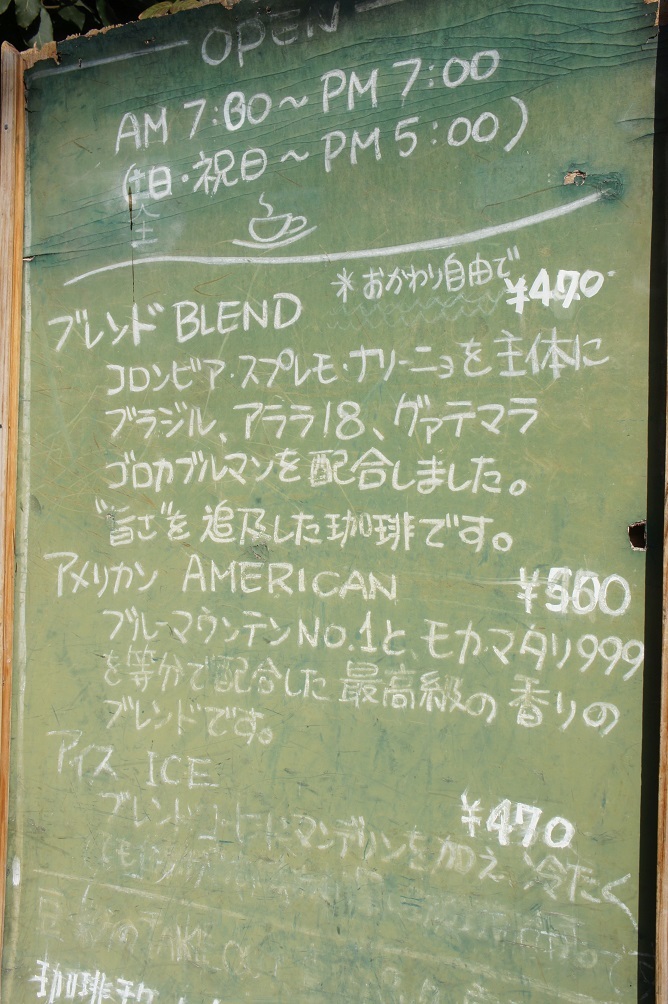 OPEN
AM 7:00～PM 7:00
(土日・祝日～PM 5:00)
全
＊おかわり自由で
ブレンド BLEND ¥470
コロンビア・スプレモ・ナリーニョを主体に
ブラジル、アララ18、グァテマラ
ゴロカブルマンを配合しました。
"旨さ"を追及した珈琲です。
アメリカン AMERICAN ¥500
ブルーマウンテンNO.1と、モカ・マタリ999
を等分で配合した最高級の香りの
ブレンドです。
アイス ICE
¥470
ブレンドコーヒーにマンデリンを加え 冷たく
珈琲